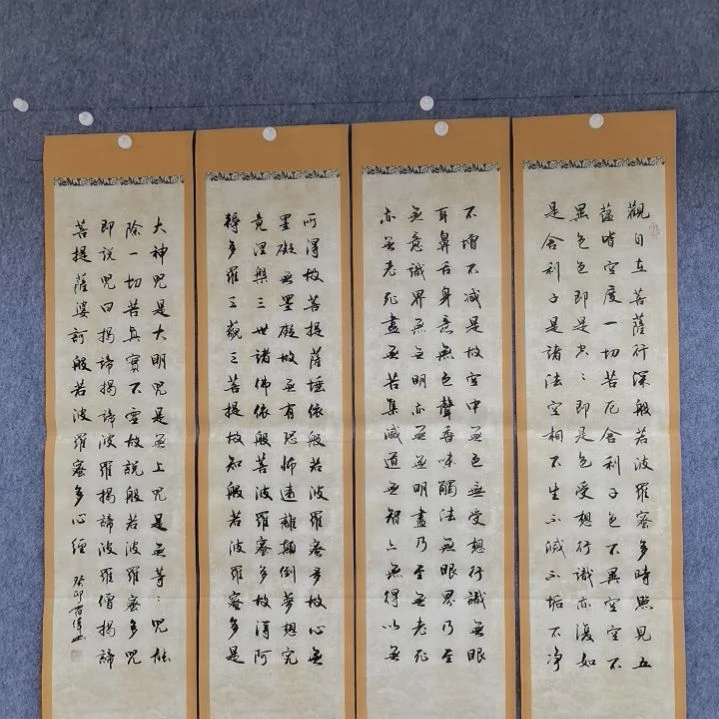 觀自在菩薩行深般若波羅蜜多時照見五
蘊皆空度一切苦厄舍利子色不異空空不
異色色即是空:即是色受想行識亦復如
是舍利子是諸法空相不生不滅不垢不净
不增不减是故空中無色無受想行識無眼
耳鼻舌身意無色聲香味觸法無眼界乃至
無意識界無無明亦無無明盡乃至無老死
亦無老死盡無苦集滅道無智亦無得以無
所得故菩提薩埵依般若波羅蜜多故心無
罣礙無罣礙故無有恐怖遠離顛倒夢想究
竟涅槃三世諸佛依般若波羅蜜多故得阿
耨多羅三藐三菩提故知般若波羅蜜多是
大神咒是大明咒是無上咒是無等:咒能
除一切苦真實不虛故說般若波羅蜜多咒
即說咒曰揭諦揭諦波羅揭諦波羅僧揭諦
菩提薩婆訶般若波羅蜜多心經
癸卯